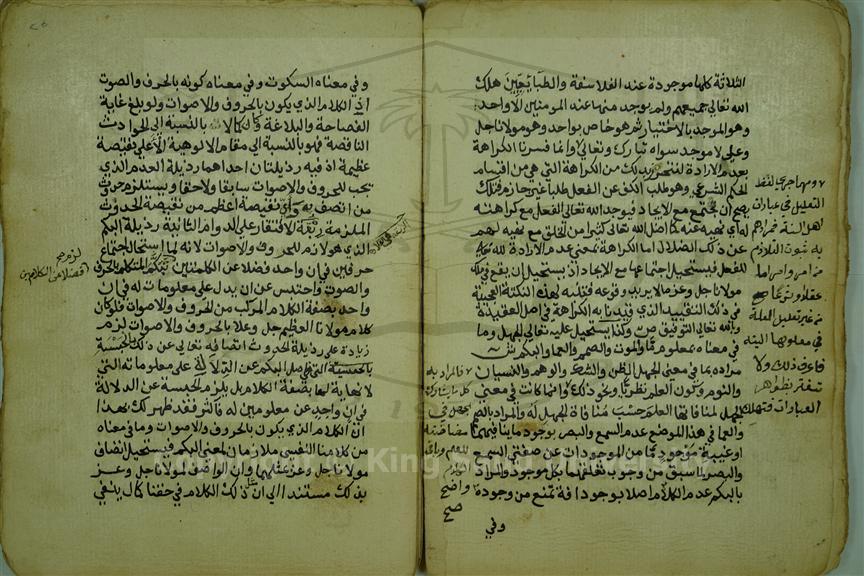 الثلاثة كلها موجودة عند الفلاسفة والطبايعيين هلك
الله تعالى جميعهم ولم يوجد منها عند المومنين الا واحد
وهو الموجد بالاختيار ثم هو خاص بواحد وهو مولانا جل
وعلى لا موجد سواه تبارك وتعالى وانما فسرنا الكراهة
بعدم الارادة لنتحرز بذلك من الكراهة التي هي من اقسام
الحكم الشرعي وهو طلب الكف عن الفعل طلبا غير جازم فتلك
يصح ان تجتمع مع الايجاد فيوجد الله تعالى الفعل مع كراهته
له اي نهيه عنه كما اضل الله تعالى كثيرا من الخلق مع نهيه لهم
عن ذلك الضلال اما الكراهة بمعنى عدم الارادة لله
للفعل فيستحيل اجتماعها مع الايجاد اذ يستحيل ان يقع في ملك
مولانا جل وعز ما لا يريد وقوعه فتنبه لهذه النكتة العجيبة
في ذلك التقييد الذي قيدنا به الكراهة في اصل العقيدة
وبالله تعالى التوفيق ص وكذا يستحيل عليه تعالى الجهل وما
في معناه بمعلوم ما والموت والصمم والعمى والبكم ش
مراده بما في معنى الجهل الظن والشك والوهم والنسيان
والنوم وكون العلم نظريا ونحو ذلك وانما كانت في معنى
الجهل لمنافاتها العلم حسب منافاة الجهل له والمراد بالصمم
والعما في هذا الموضع عدم السمع والبصر بوجود ما ينافيهما
او غيبة موجود ما من الموجودات عن صفتي السمع
والبصر لما سبق من وجوب تعلقهما بكل موجود والمراد
بالبكم عدم الكلام اصلا بوجود افة تمنع من وجوده
وفي
ومهما جرى لفظ
التعليل في عبارات
اهل السنة فمرادهم
به ثبوت التلازم
بين امر وامر اما
عقلا او شرعا
من غير تعليل العلة
في معلولها البتة
فاعرف ذلك ولا
تغتر بظواهر
العبارات فتهلك
واضح
صح
وفي معناه السكوت وفي معناه كونه بالحروف والصوت
اذ الكلام الذي يكون بالحروف والاصوات ولو بلغ غاية
الفصاحة والبلاغة والكمالات بالنسبة الى الحوادث
الناقصة فهو بالنسبة الى مقام الالوهية الاعلى نقيصة
عظيمة اذ فيه رذيلتان احداهما رذيلة العدم الذي
يجب للحروف والاصوات سابقا ولاحقا ويستلزم حدوث
من اتصف به واي نقيصة اعظم من نقيصة الحدوث
الملزمة ربقة الافتقار على الدوام الثانية رذيلة البكم
الذي هو لازم للحروف والاصوات لانه لما استحال اجتماع
حرفين في ان واحد فضلا عن الكلمتين تبكم المتكلم بالحرف
والصوت واحتبس عن ان يدل على معلومات له في ان
واحد بصفة الكلام المركب من الحروف والاصوات فلو كان
كلام مولانا العظيم جل وعلا بالحروف والاصوات لزم
زيادة على رذيلة الحدوث اتصافه تعالى عن ذلك
التي هي اصل البكم عن الدلالة على معلوماته التي
لا نهاية لها بصفة الكلام بل يلزم الحبسة عن الدلالة
في ان واحد عن معلومين له فاكثر فقد ظهر لك بهذا
ان الكلام الذي يكون بالحروف والاصوات وما في معناه
من كلامنا النفسي ملازمان لمعنى البكم فيستحيل اتصاف
مولانا جل وعز عنهما وان الواصف لمولانا جل وعز
بذلك مستندا الى ان ذلك الكلام في حقنا كمال ينفي
King